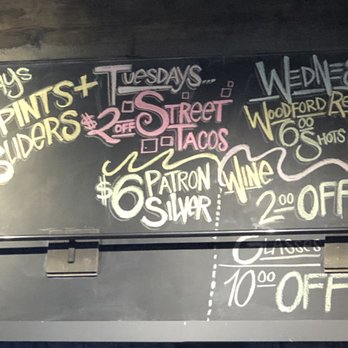 AYS
PINTS +
SLIDERS
TUESDAYS...
$2 OFF STREET
TACOS
$6 PATRON
SILVER
WEDNE
WOODFORD RE
6.00 SHOTS
WINE
2.00 OFF
GLASSES
10.00 OFF